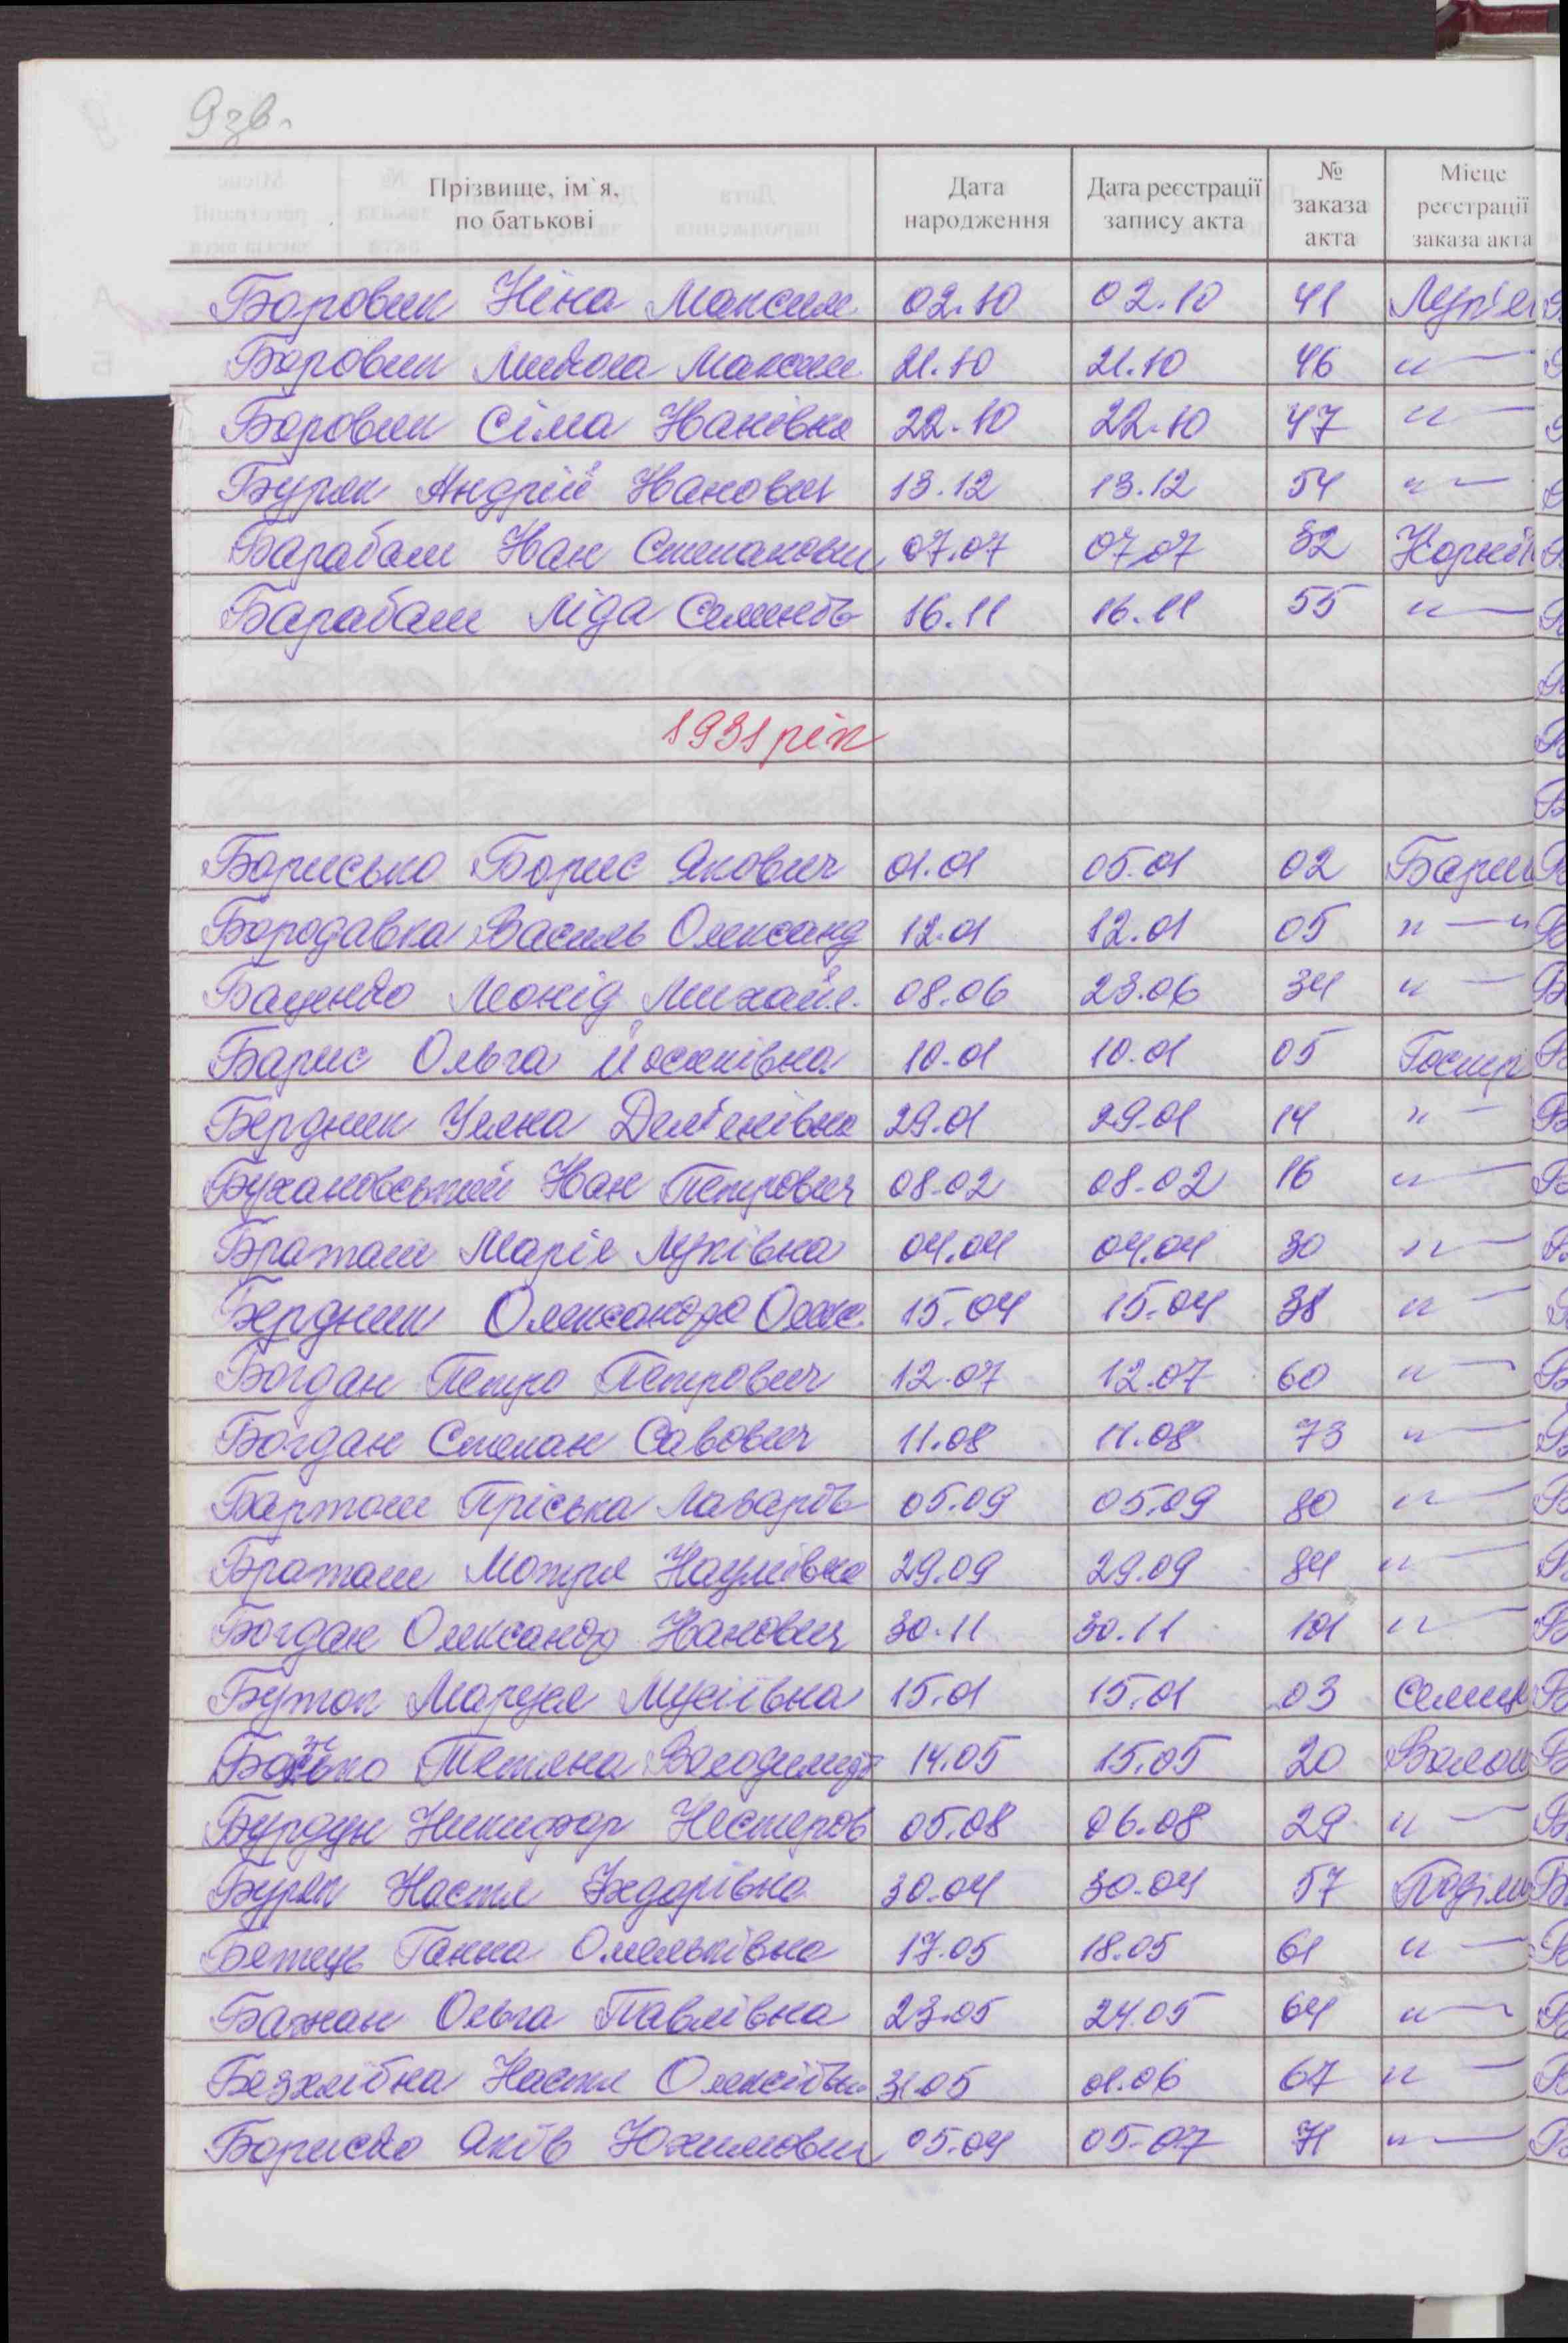 9 зв.
Прізвище, ім`я, по батькові | Дата народження | Дата реєстрації запису акта | № заказа акта | Місце реєстрації заказа акта
Боровик Ніна Максим. 02.10 02.10 41 Луп'ян
Боровик Микола Максим. 21.10 21.10 46 "—
Боровик Сіма Іванівна 22.10 22.10 47 "—
Буряк Андрій Іванович 13.12 13.12 54 "—
Барабаш Іван Степанович 07.07 07.07 32 Корній
Барабаш Ліда Семенів 16.11 16.11 55 "—
1931 рік
Борисько Борис Якович 01.01 05.01 02 Бариш
Бородавка Василь Олександ 12.01 12.01 05 "—"
Баценко Леонід Михайл. 08.06 23.06 34 "—
Барис Ольга Йосипівна 10.01 10.01 05 Гостр
Бердник Уляна Дем'янівна 29.01 29.01 14 "—
Бухановський Іван Петрович 08.02 08.02 16 "—
Браташ Марія Луківна 04.04 04.04 30 "—
Бердник Олександра Олекс. 15.04 15.04 38 "—
Богдан Петро Петрович 12.07 12.07 60 "—
Богдан Степан Савович 11.08 11.08 73 "—
Барташ Пріська Лазарів 05.09 05.09 80 "—
Браташ Мотря Наумівна 29.09 29.09 84 "—
Богдан Олександр Іванович 30.11 30.11 101 "—
Буток Маруся Мусіївна 15.01 15.01 03 Семен
Тетяна Володимир 14.05 15.05 20 Волош
Бурдун Никифор Нестеров 05.08 06.08 29 "—
Буряк Настя Федорівна 30.04 30.04 57 Поділ
Ганна Омельківна 17.05 18.05 61 "—
Бажан Ольга Павлівна 23.05 24.05 64 "—
Безхлібна Настя Олексіївна 31.05 01.06 67 "—
Бориско Яків Юхимович 05.04 05.07 71 "—